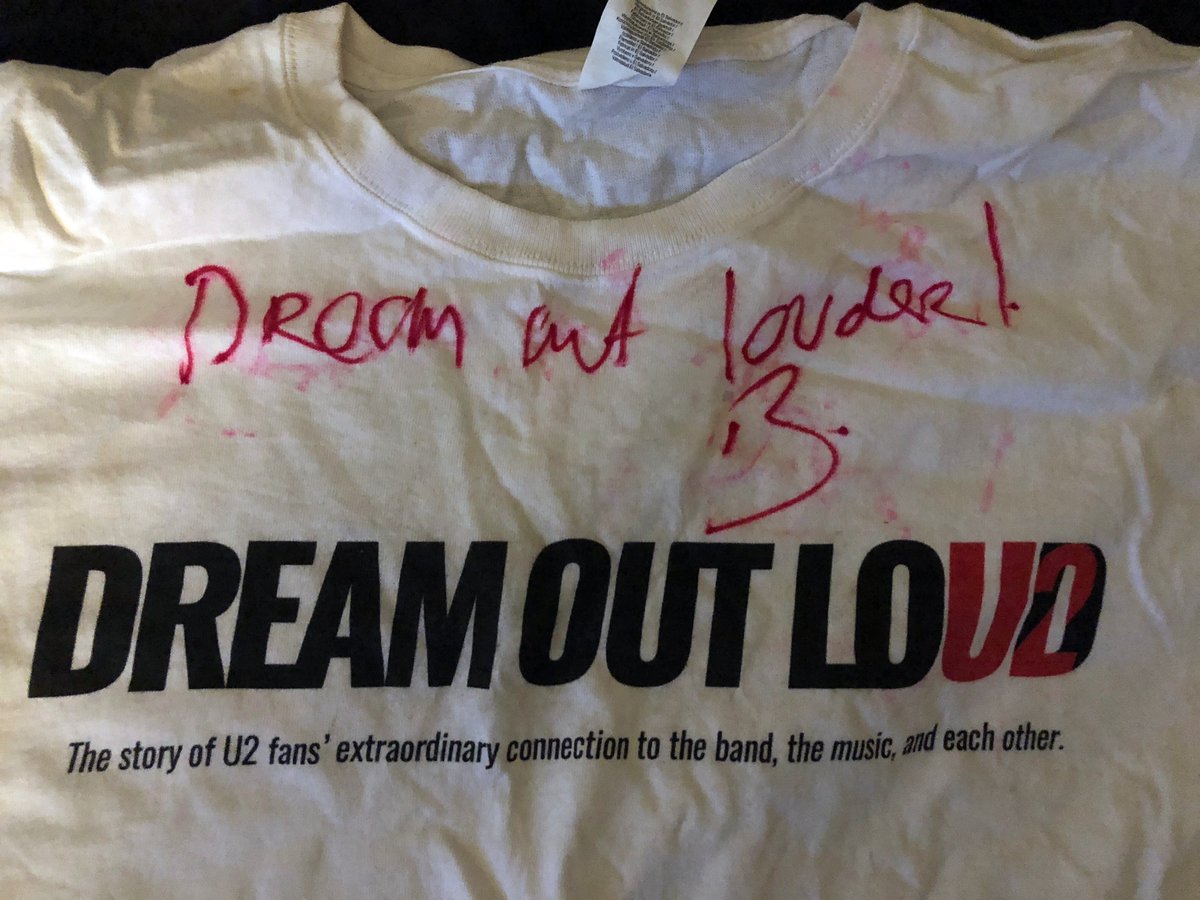 Dream out louder!
B.
DREAM OUT LOU2
The story of U2 fans' extraordinary connection to the band, the music, and each other.